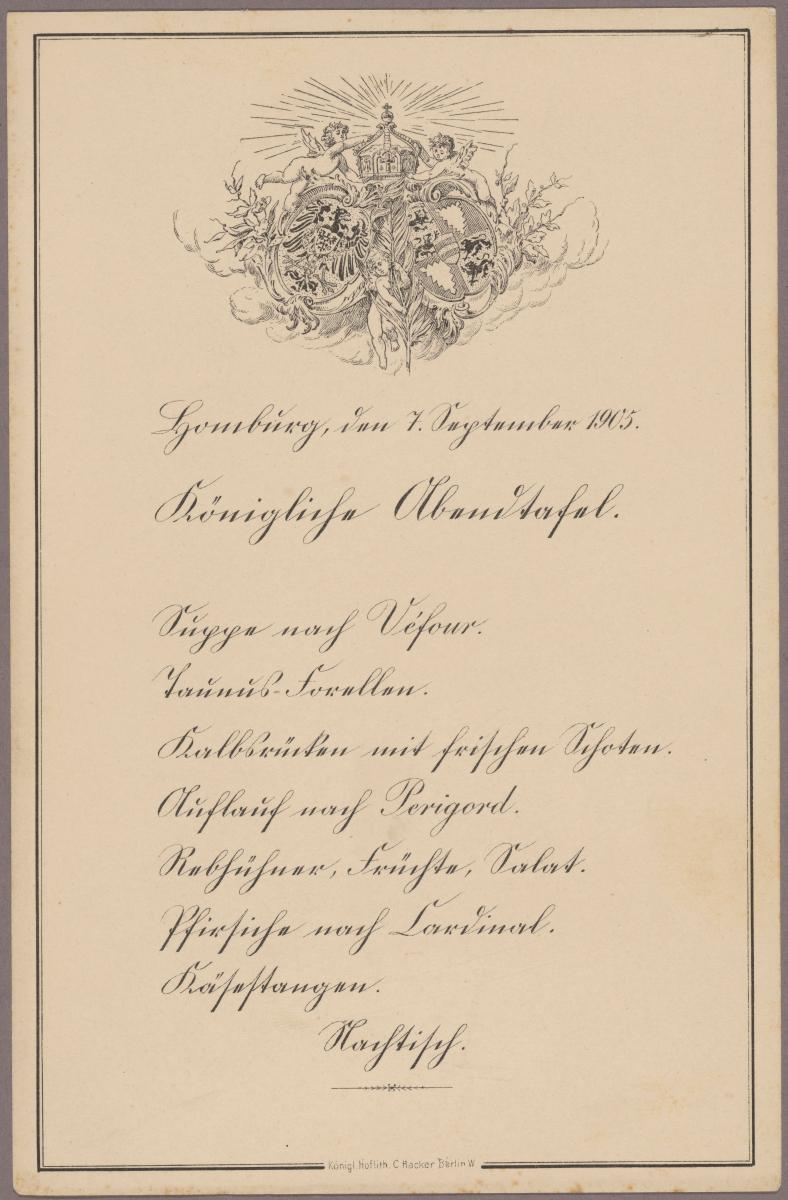 Homburg, den 7. September 1905.
Königliche Abendtafel.
Suppe nach Véfour.
Taunus-Forellen.
Kalbsrücken mit frischen Schoten.
Auflauf nach Perigord.
Rebhühner, Früchte, Salat.
Pfirsiche nach Cardinal.
Käsestangen.
Nachtisch.
Königl. Hoflith. C. Hacker Berlin W